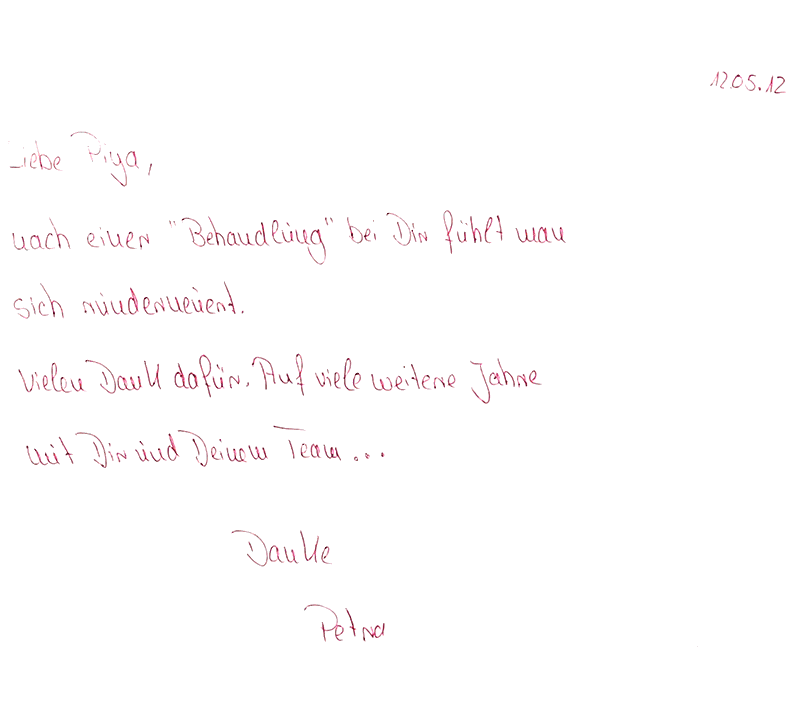 12.05.12
Liebe Piya,
nach einer "Behandlung" bei Dir fühlt man
sich runderneuert.
Vielen Dank dafür. Auf viele weitere Jahre
mit Dir und Deinem Team...
Danke
Petra